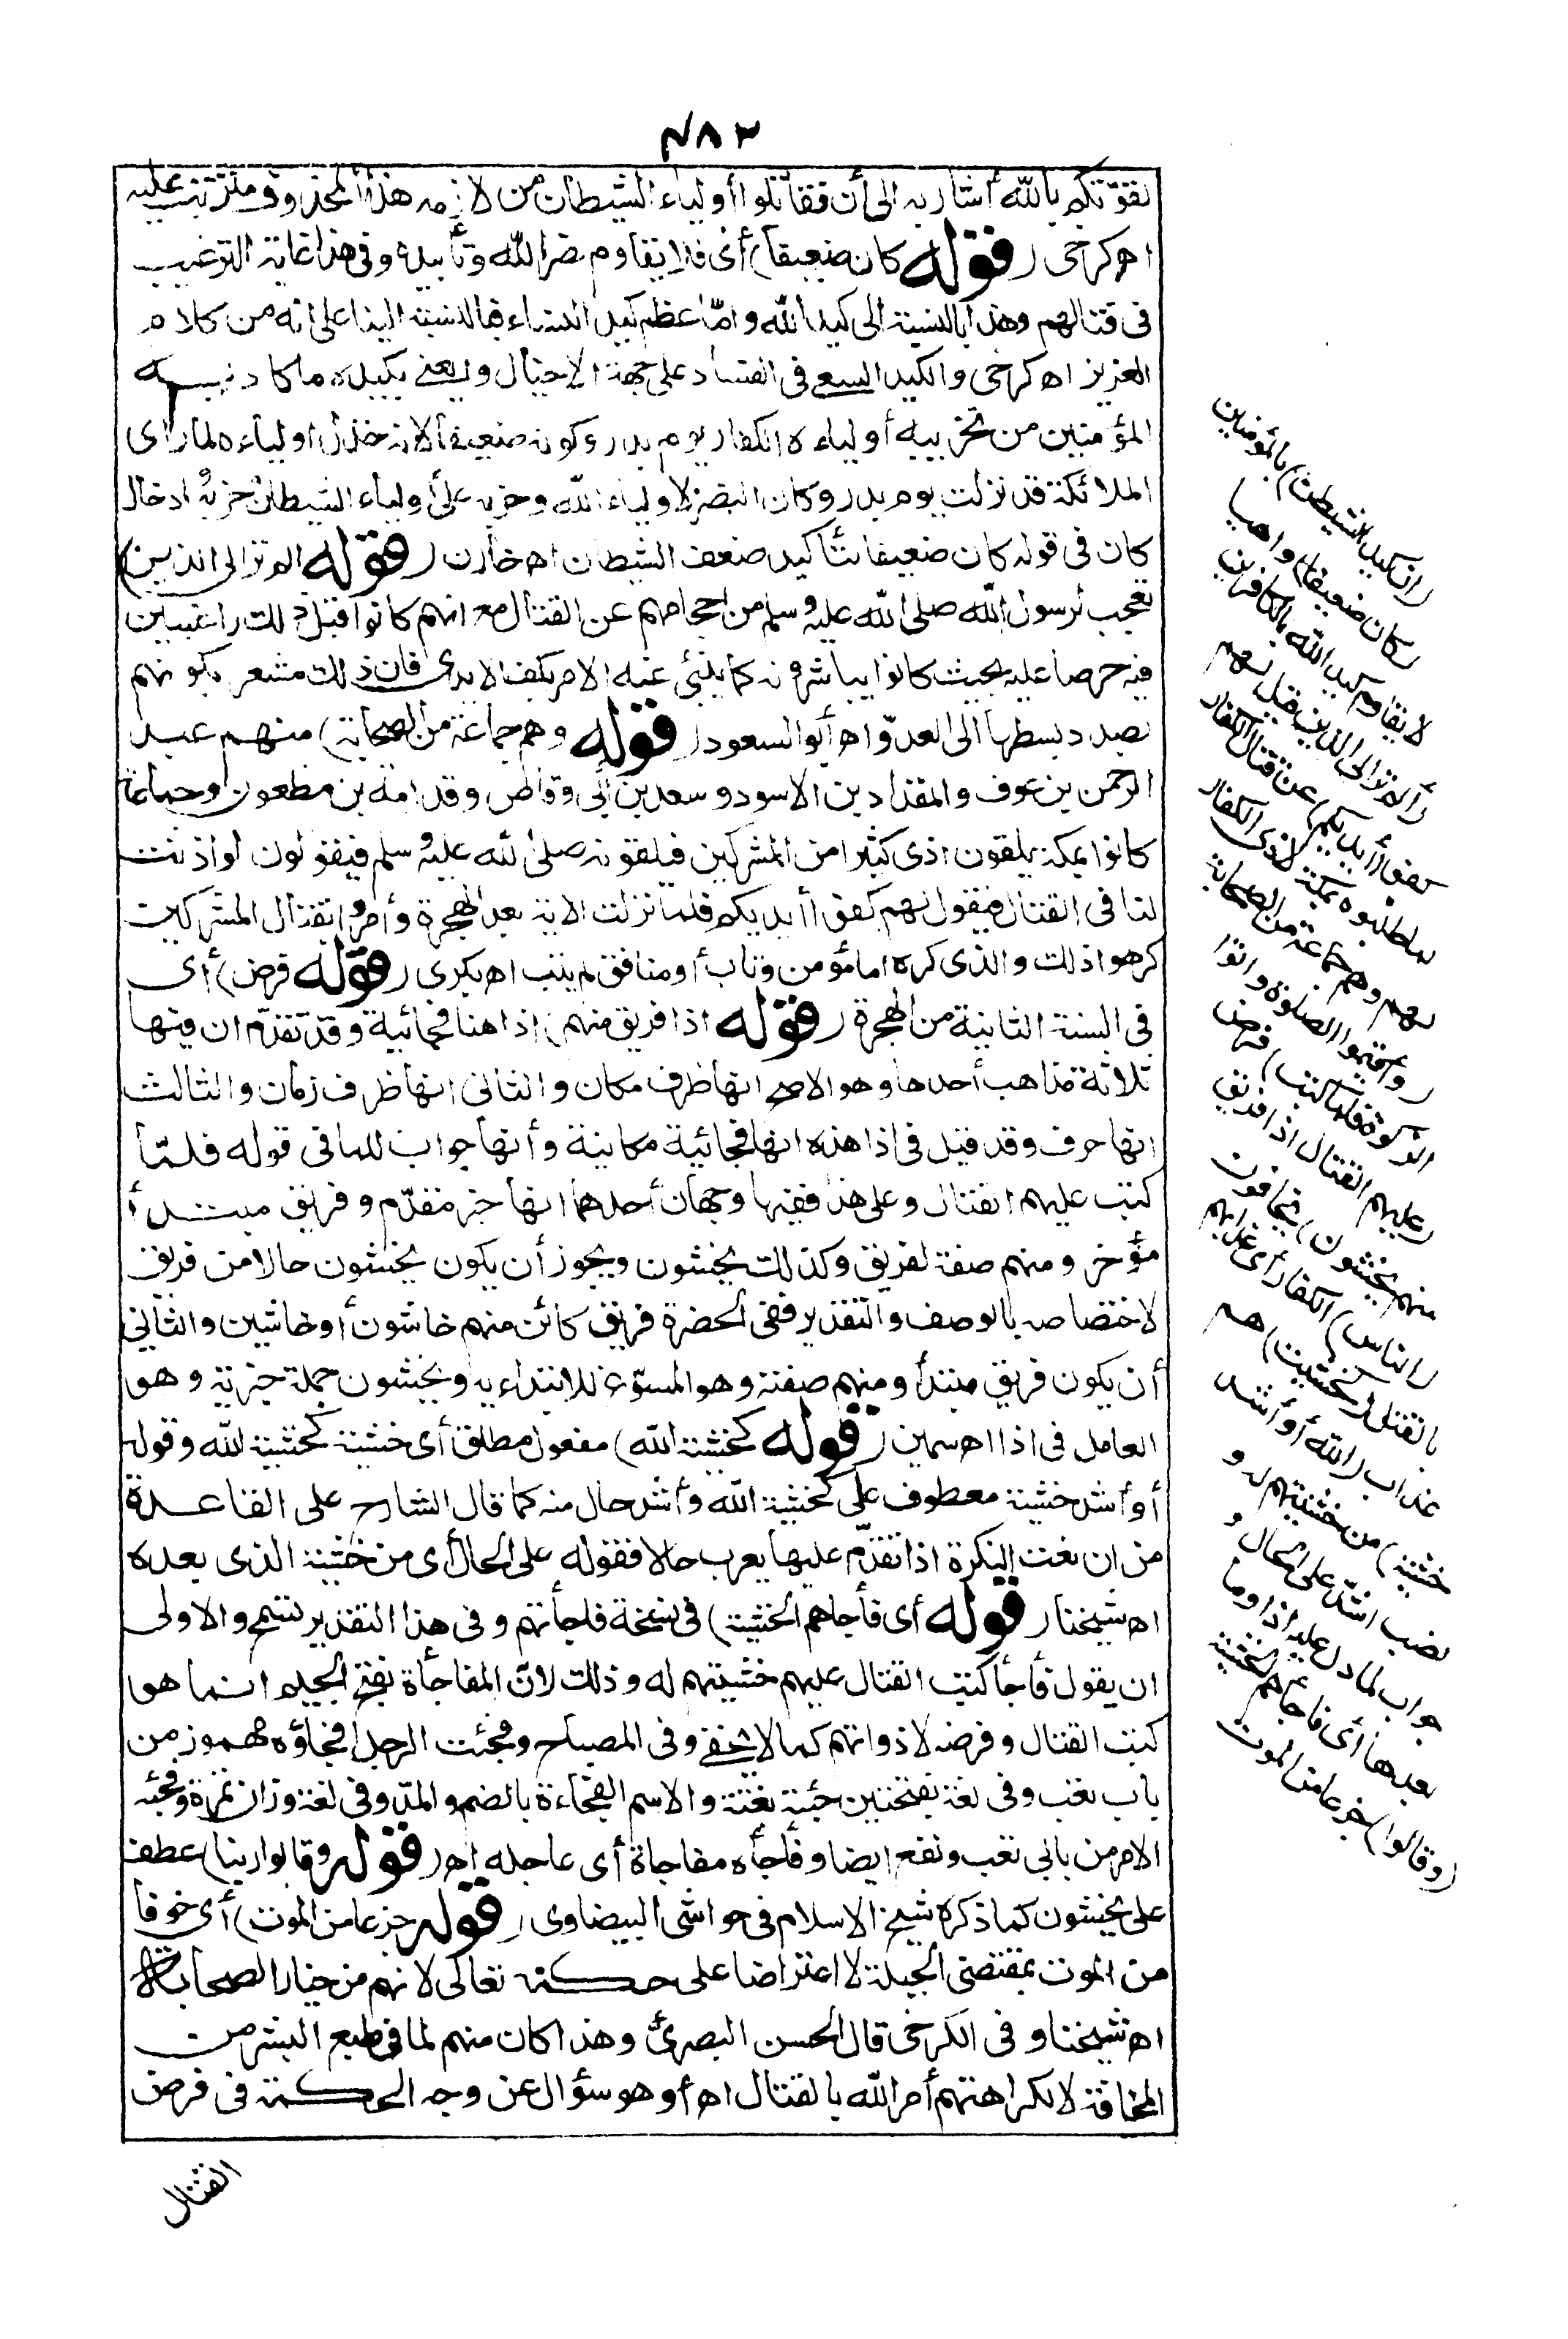 ٤٨٢
لقوّتكم بالله أشار به الى أن فقاتلوا أولياء الشيطان من لازمه هذا المحذوف مترتب عليه
اه كرخى (قوله كان ضعيفا) أى فلا يقاوم نصر الله وتأييده وفى هذا غاية الترغيب
فى قتالهم وهذا بالنسبة الى كيد الله وامّا عظم كيد النساء فبالنسبة الينا على انه من كلام
العزيز اه كرخى والكيد السعى فى الفساد على جهة الاحتيال ويعنى بكيده ما كاد به
المؤمنين من تحزيبه أولياءه الكفار يوم بدر وكونه ضعيفا لانه خذل اولياءه لما رأى
الملائكة قد نزلت يوم بدر وكان النصر لاولياء الله وحزبه على أولياء الشيطان وحزبه وادخال
كان فى قوله كان ضعيفا لتأكيد ضعف الشيطان اه خازن (قوله الم تر الى الذين)
تعجب لرسول الله صلى الله عليه وسلم من احجامهم عن القتال مع انهم كانوا قبل ذلك راغبين
فيه حرصا عليه بحيث كانوا يباشرونه كما ينبئ عنه الامر بكف الايدى فان ذلك مشعر بكونهم
بصدد بسطها الى العدوّ اه أبو السعود (قوله وهم جماعة من الصحابة) منهم عبد
الرحمن بن عوف والمقداد بن الاسود وسعد بن أبى وقاص وقدامة بن مظعون وجماعة
كانوا بمكة يلقون اذى كثيرا من المشركين فيلقونه صلى الله عليه وسلم فيقولون لو اذنت
لنا فى القتال فيقول لهم كفوا أيديكم فلما نزلت الاية بعد الهجرة وأمروا بقتال المشركين
كرهوا ذلك والذى كره اما مؤمن وتاب أو منافق لم يتب اه بكرى (قوله فرض) أى
فى السنة الثانية من الهجرة (قوله اذا فريق منهم) اذا هنا فجائية وقد تقدّم ان فيها
ثلاثة مذاهب أحدها وهو الاصح انها ظرف مكان والثانى انها ظرف زمان والثالث
انها حرف وقد قيل فى اذا هذه انها فجائية مكانية وأنها جواب للما فى قوله فلمّا
كتب عليهم القتال وعلى هذا ففيها وجهان أحدهما انها خبر مقدّم وفريق مبتدأ
مؤخر ومنهم صفة لفريق وكذلك يخشون ويجوز أن يكون يخشون حالا من فريق
لاختصاصه بالوصف والتقدير ففى الحضرة فريق كائن منهم خاشون أو خاشين والثانى
أن يكون فريق مبتدأ ومنهم صفته وهو المسوّغ للابتداء به ويخشون جملة خبرية وهو
العامل فى اذا اه سمين (قوله كخشية الله) مفعول مطلق أى خشية كخشية الله وقوله
أو أشد خشية معطوف على كخشية الله وأشد حال منه كما قال الشارح على القاعدة
من ان نعت النكرة اذا تقدّم عليها يعرب حالا فقوله على الحال أى من خشية الذى بعده
اه شيخنا (قوله أى فأجاهم الخشية) فى نسخة فاجأتهم وفى هذا التقدير تسمح والاولى
ان يقول فأجأ كتب القتال عليهم خشيتهم له وذلك لانّ المفاجأة بفتح الجيم انما هو
كتب القتال وفرضه لاذواتهم كما لا يخفى وفى المصباح وفجئت الرجل افجاؤه مهموز من
باب تعب وفى لغة بفتحتين جئته بغتة والاسم الفجاءة بالضم والمدّ وفى لغة وزان تمرة وفجئه
الامر من بابى تعب ونفع ايضا وفاجأه مفاجاة أى عاجله اه (قوله وقالوا ربنا) عطف
على يخشون كما ذكره شيخ الاسلام فى حواشى البيضاوى (قوله جزعا من الموت) أى خوفا
من الموت بمقتضى الجبلة لا اعتراضا على حكمه تعالى لانهم من خيار الصحابة
اه شيخنا وفى الكرخى قال الحسن البصرىّ وهذا كان منهم لما فى طبع البشر من
المخافة لا لكراهتهم أمر الله بالقتال اه أو هو سؤال عن وجه الحكمة فى فرض
القتال
(ان كيد الشيطن) بالمؤمنين
(كان ضعيفا) واهيا
لا يقاوم كيد الله بالكافرين
(ألم تر الى الذين قيل لهم
كفوا أيديكم) عن قتال الكفار
لما طلبوه بمكة لاذى الكفار
لهم وهم جماعة من الصحابة
(وأقيموا الصلوة واتوا
الزكوة فلما كتب) فرض
(عليهم القتال اذا فريق
منهم يخشون) يخافون
(الناس) الكفار أى عذابهم
بالقتل (كخشيت) هم
عذاب (الله أو أشد
خشية) من خشيتهم له و
نصب اشدّ على الحال و
جواب لما دل عليه اذا وما
بعدها أى فاجأهم الخشية
(وقالوا) جزعا من الموت